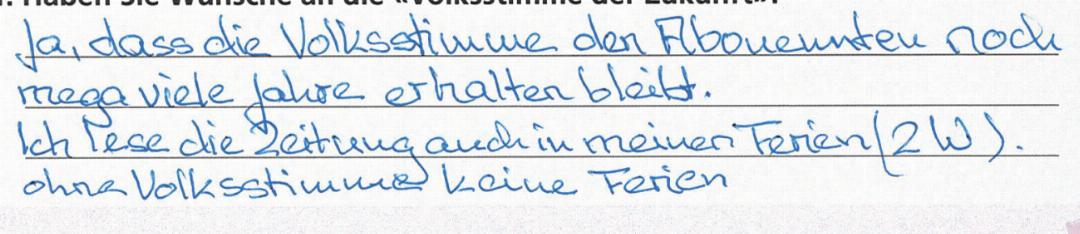 . Haben Sie Wünsche an die «Volksstimme der Zukunft»?
Ja, dass die Volksstimme den Abonennten noch
mega viele Jahre erhalten bleibt.
Ich lese die Zeitung auch in meinen Ferien (2 W).
ohne Volksstimme keine Ferien